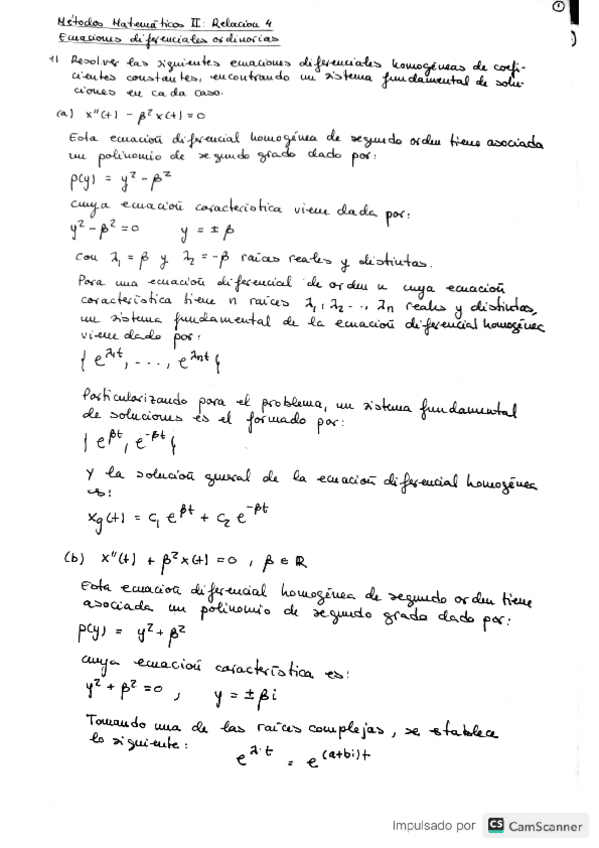 ①
Métodos Matemáticos II: Relación 4
Ecuaciones diferenciales ordinarias
1) Resolver las siguientes ecuaciones diferenciales homogéneas de coefi-
cientes constantes, encontrando un sistema fundamental de solu-
ciones en cada caso.
(a) x''(t) - β² x(t) = 0
Esta ecuación diferencial homogénea de segundo orden tiene asociada
un polinomio de segundo grado dado por:
p(y) = y² - β²
cuya ecuación característica viene dada por:
y² - β² = 0    y = ± β
con λ₁ = β y λ₂ = -β raíces reales y distintas.
Para una ecuación diferencial de orden n cuya ecuación
característica tiene n raíces λ₁, λ₂ ..., λn reales y distintas,
un sistema fundamental de la ecuación diferencial homogénea
viene dado por:
{ e^λ₁t, ..., e^λnt }
Particularizando para el problema, un sistema fundamental
de soluciones es el formado por:
{ e^βt, e^-βt }
Y la solución general de la ecuación diferencial homogénea
es:
xg(t) = c₁ e^βt + c₂ e^-βt
(b) x''(t) + β² x(t) = 0 , β ∈ ℝ
Esta ecuación diferencial homogénea de segundo orden tiene
asociada un polinomio de segundo grado dado por:
p(y) = y² + β²
cuya ecuación característica es:
y² + β² = 0 ,    y = ± βi
Tomando una de las raíces complejas, se establece
lo siguiente:
e^λ·t = e^(a+bi)t
Impulsado por CS CamScanner